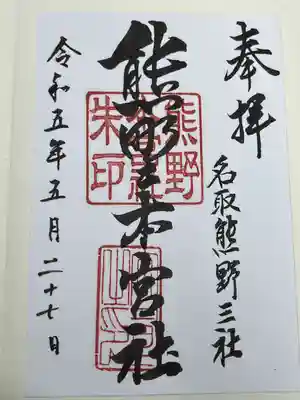 奉拝
名取熊野三社
熊野本宮社
令和五年五月二十七日